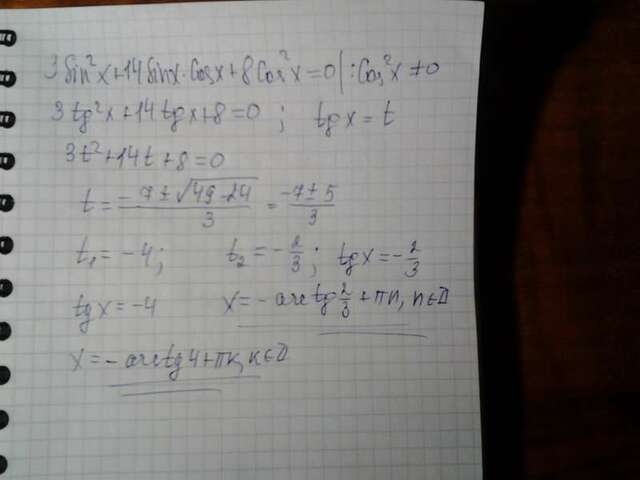 3 sin²x + 14 sinx · cosx + 8 cos²x = 0 | : cos²x ≠ 0
3 tg²x + 14 tgx + 8 = 0 ; tgx = t
3t² + 14t + 8 = 0
t = (-7 ± √(49-24))/3 = (-7 ± 5)/3
t₁ = -4; t₂ = -2/3; tgx = -2/3
tgx = -4 x = -arctg 2/3 + πn, n∈Z
x = -arctg4 + πk, k∈Z